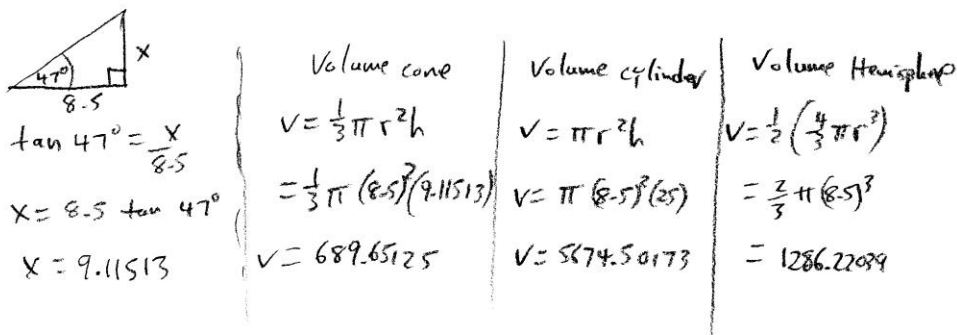 x
47°
8.5
tan 47° = x/8.5
x = 8.5 tan 47°
x = 9.11513
Volume cone
V = 1/3 π r²h
= 1/3 π (8.5)²(9.11513)
V = 689.65125
Volume cylinder
V = π r²h
V = π (8.5)²(25)
V = 5674.50173
Volume Hemisphere
V = 1/2 (4/3 π r³)
= 2/3 π (8.5)³
= 1286.22039